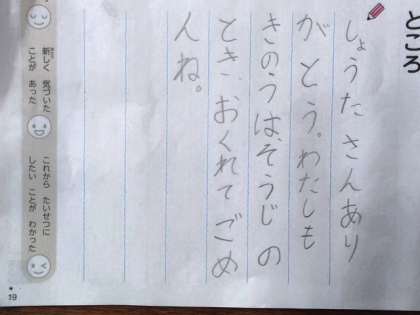 ところ
しょうたさんあり
がとう。わたしも
きのうは、そうじの
とき、おくれてごめ
んね。
新しく 気づいた
ことが あった
これから たいせつに
したい ことが わかった
19